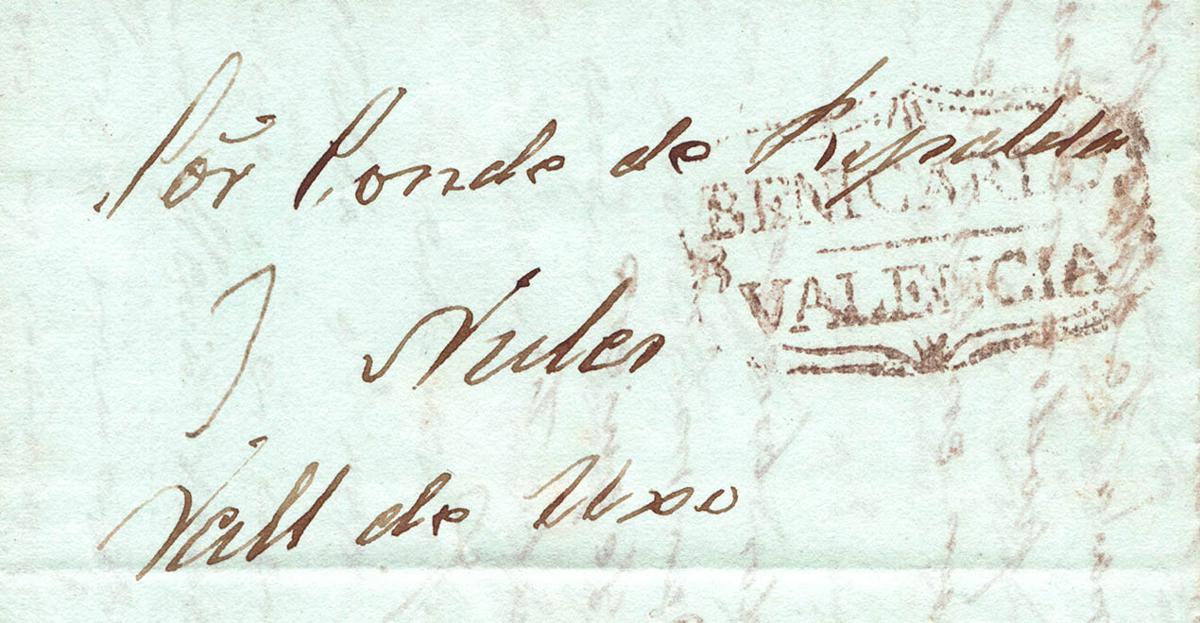 Sõr Conde de Ripalda
BENICARLO
VALENCIA
Nules
Vall de Uxo